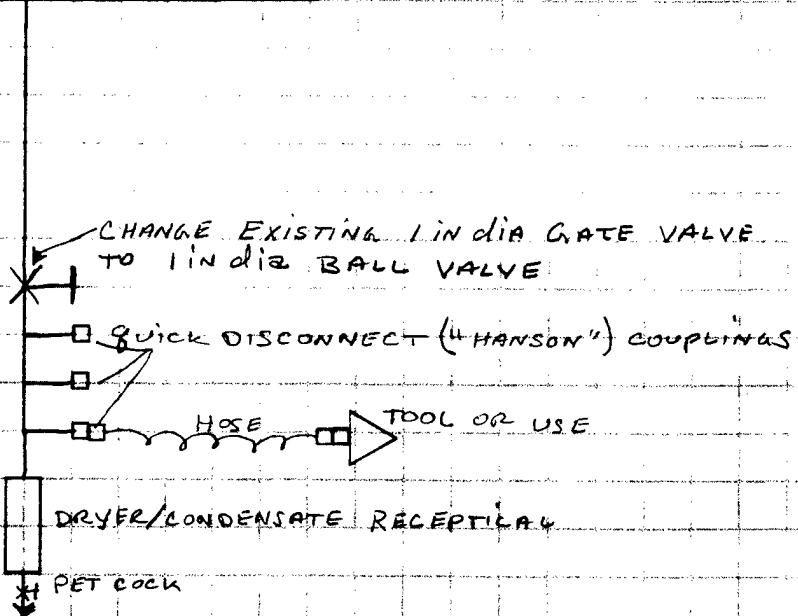 CHANGE EXISTING 1 in dia GATE VALVE
TO 1 in dia BALL VALVE
QUICK DISCONNECT ("HANSON") COUPLINGS
HOSE
TOOL OR USE
DRYER/CONDENSATE RECEPTICAL
PET COCK